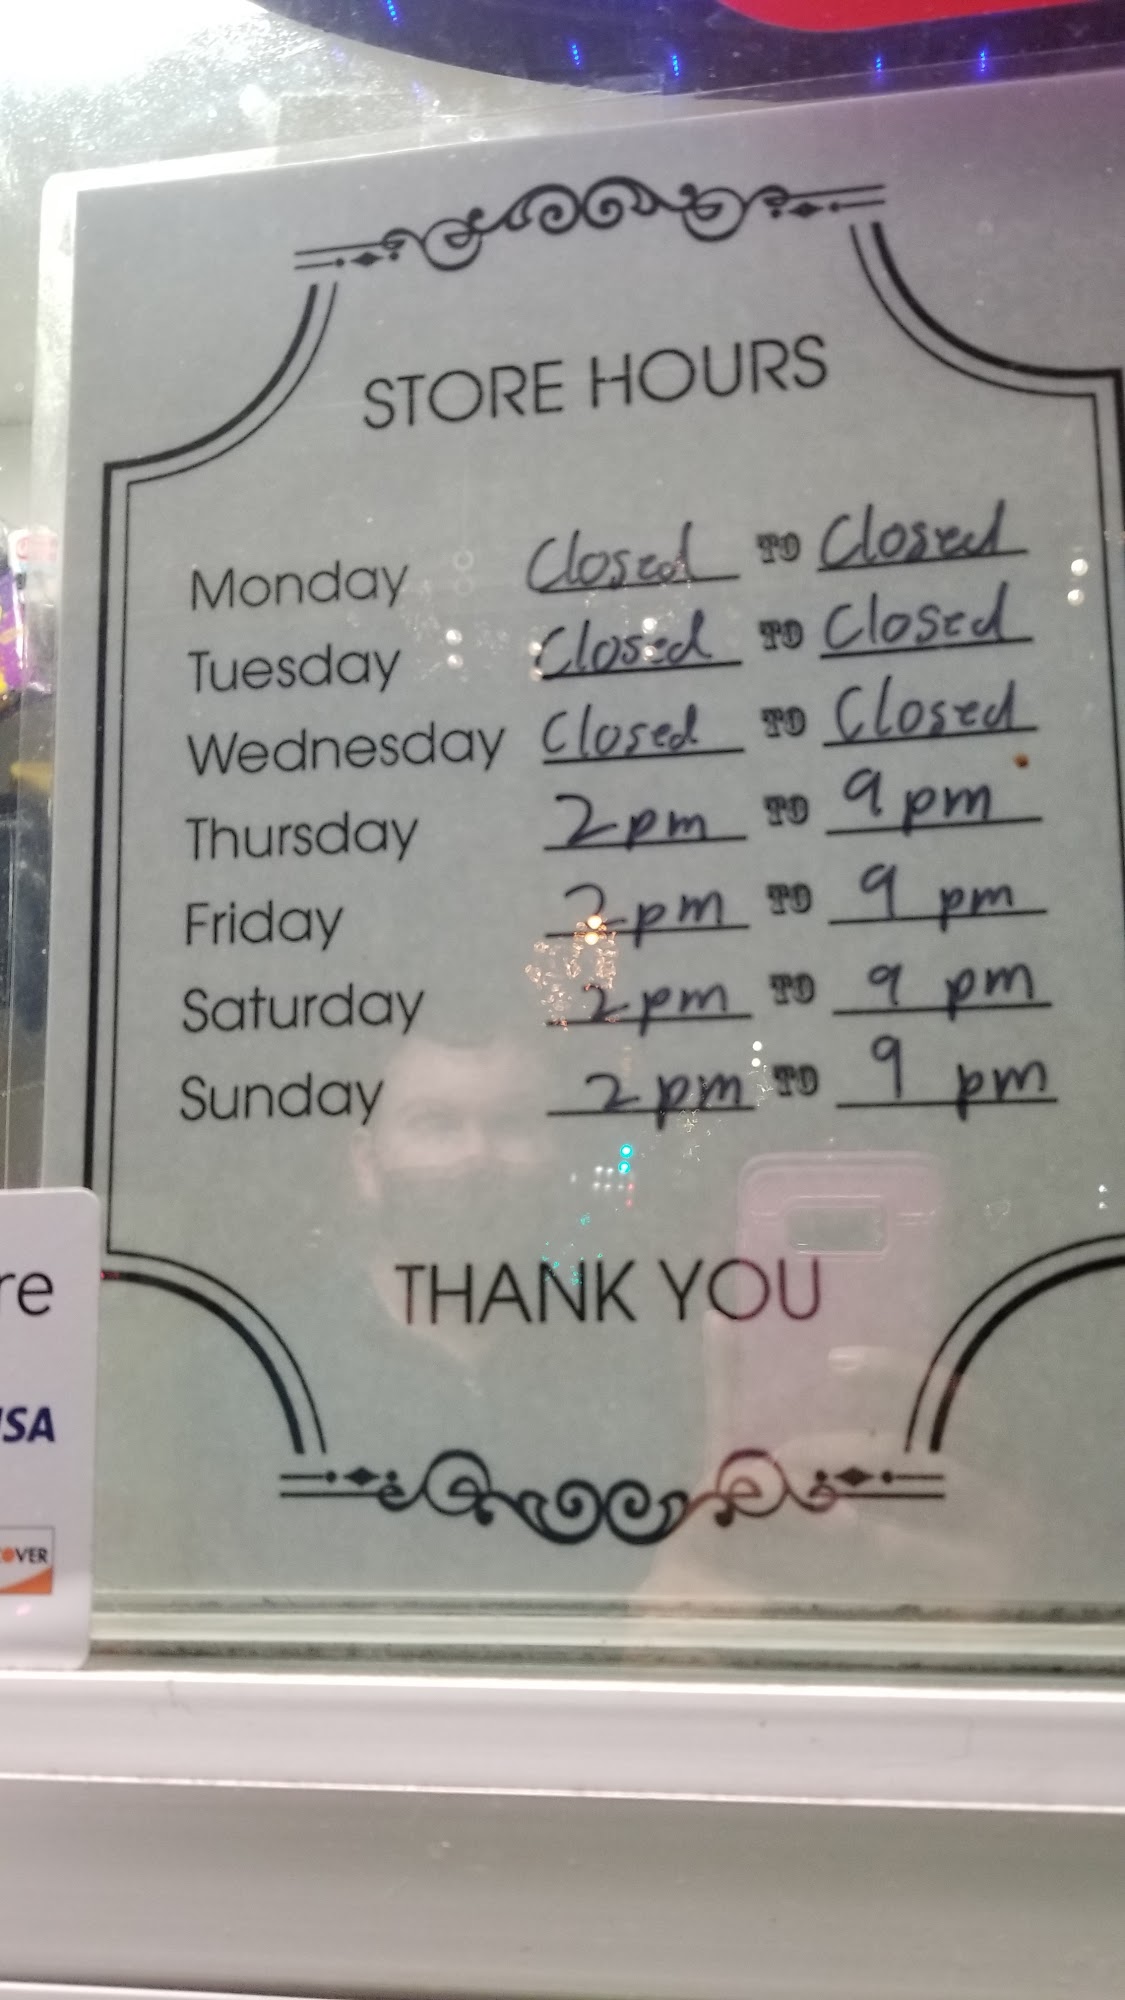 STORE HOURS
Monday Closed TO Closed
Tuesday Closed TO Closed
Wednesday Closed TO Closed
Thursday 2pm TO 9pm
Friday 2pm TO 9 pm
Saturday 2pm TO 9 pm
Sunday 2pm TO 9 pm
THANK YOU